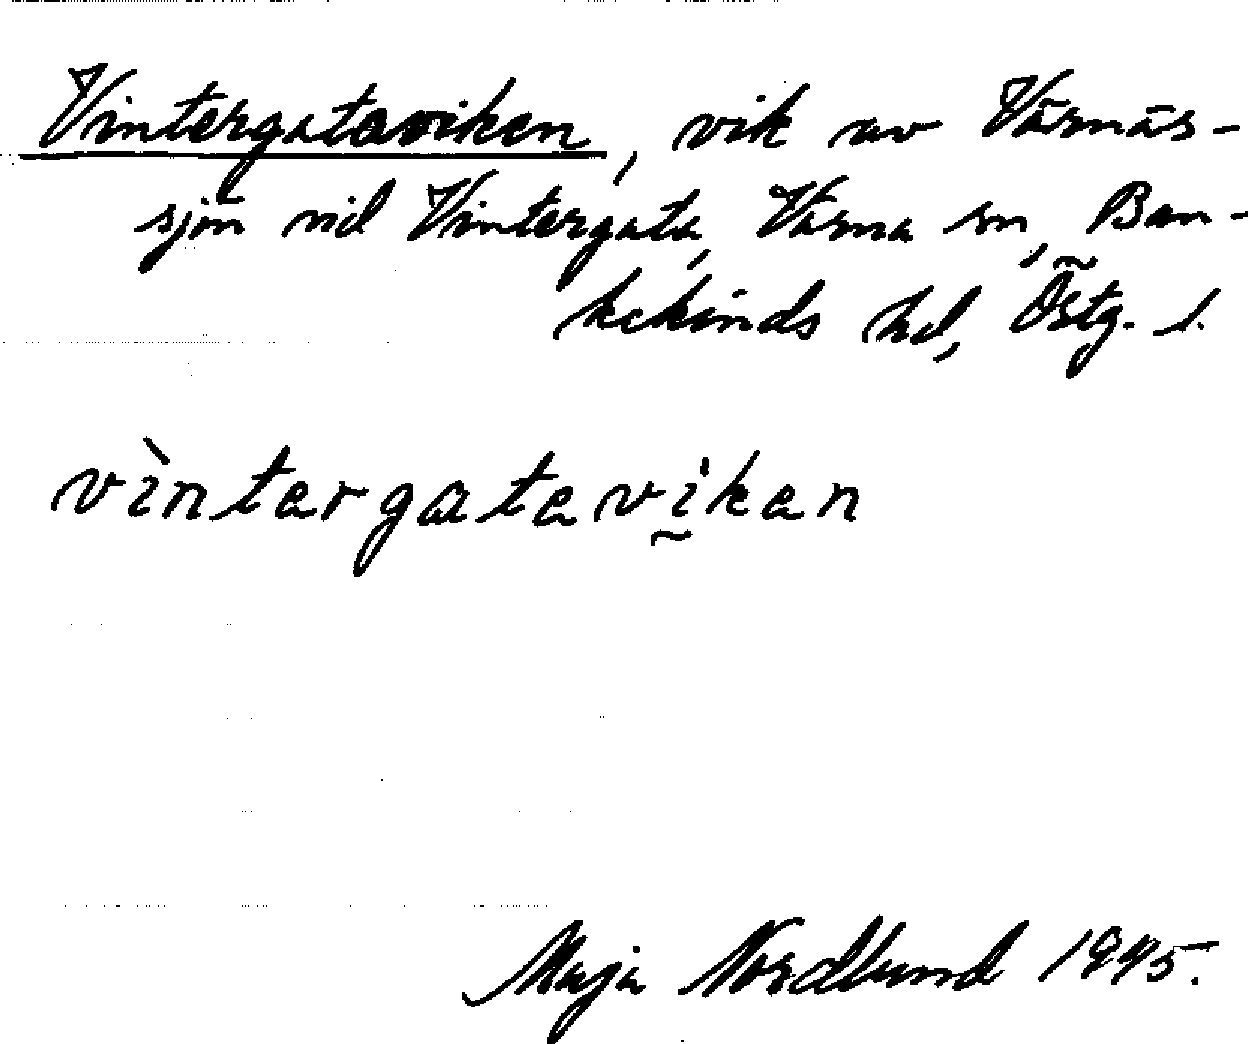 Vintergataviken, vik av Värnäs-
sjön vid Vintergata, Vårna sn, Ban-
kekinds hd, Östg. l.
vìntergatavḭken
Maja Nordlund 1945.